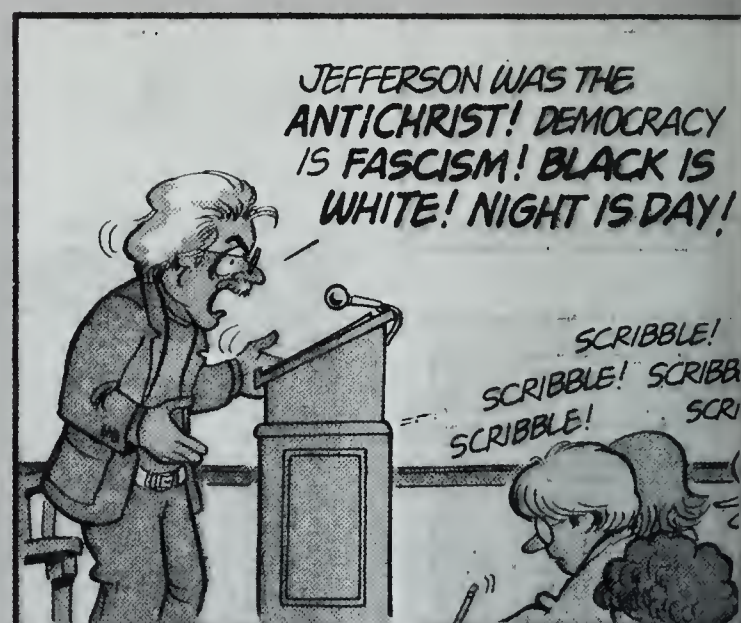 JEFFERSON WAS THE
ANTICHRIST! DEMOCRACY
IS FASCISM! BLACK IS
WHITE! NIGHT IS DAY!
SCRIBBLE!
SCRIBBLE! SCRIBB
SCRIBBLE! SCRI